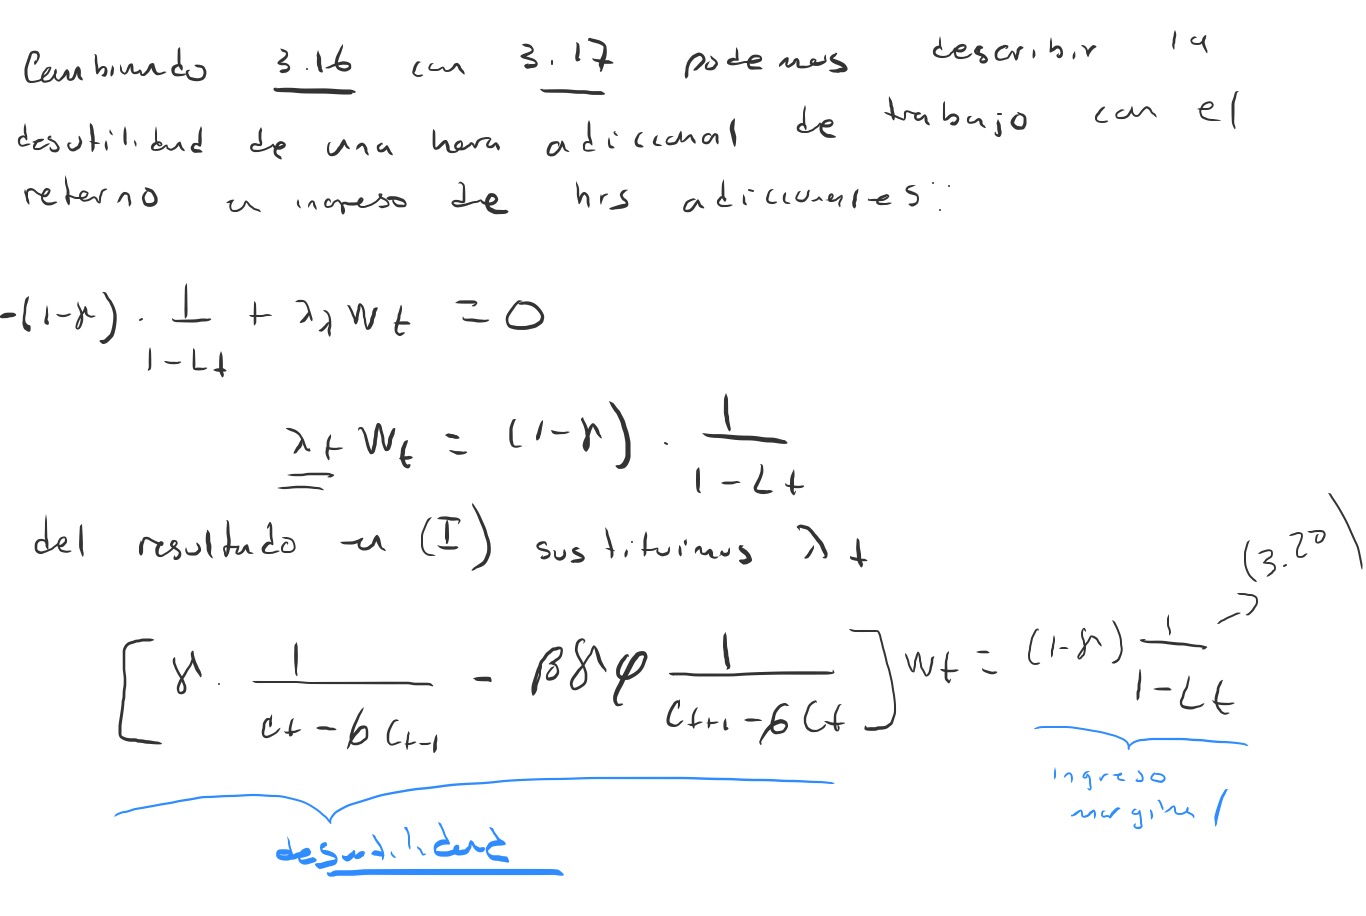 Combinando 3.16 con 3.17 podemos describir la
desutilidad de una hora adicional de trabajo con el
retorno en ingreso de hrs adicionales:
-(1-γ) · 1/(1-Lt) + λt Wt = 0
λt Wt = (1-γ) · 1/(1-Lt)
del resultado en (I) sustituimos λt
[γ · 1/(Ct - φCt-1) - βγφ 1/(Ct+1 - φCt)] Wt = (1-γ) 1/(1-Lt) → (3.20)
ingreso
marginal
desutilidad